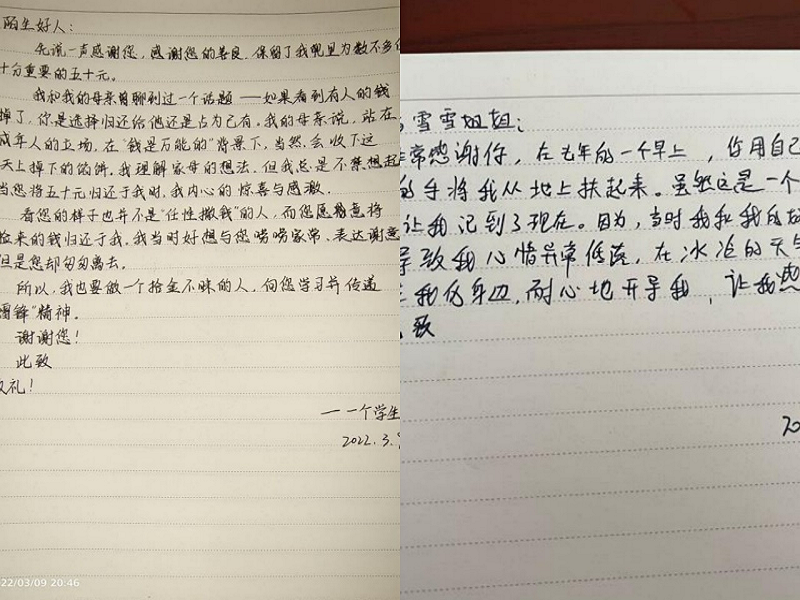 陌生好人：
先说一声感谢您，感谢您的善良，保留了我兜里为数不多但
十分重要的五十元。
我和我的母亲曾聊到过一个话题——如果看到有人的钱
掉了，你是选择归还给他还是占为己有。我的母亲说，站在
成年人的立场，在“钱是万能的”背景下，当然，会收下这
天上掉下的馅饼。我理解家母的想法，但我总是不禁想起
当您将五十元归还于我时，我内心的惊喜与感激。
看您的样子也并不是“任性撒钱”的人，而您愿意将
捡来的钱归还于我，我当时好想与您唠唠家常、表达谢意
但是您却匆匆离去。
所以，我也要做一个拾金不昧的人，向您学习并传递
雷锋”精神。
谢谢您！
此致
敬礼！
——一个学生
2022.3.
22/03/09 20:46
雪雪姐姐：
非常感谢你，在去年的一个早上，你用自己
的手将我从地上扶起来。虽然这是一个
让我记到了现在。因为，当时我和我的
导致我心情异常低落，在冰冷的天气
我的身边，耐心地开导我，让我感
致
20